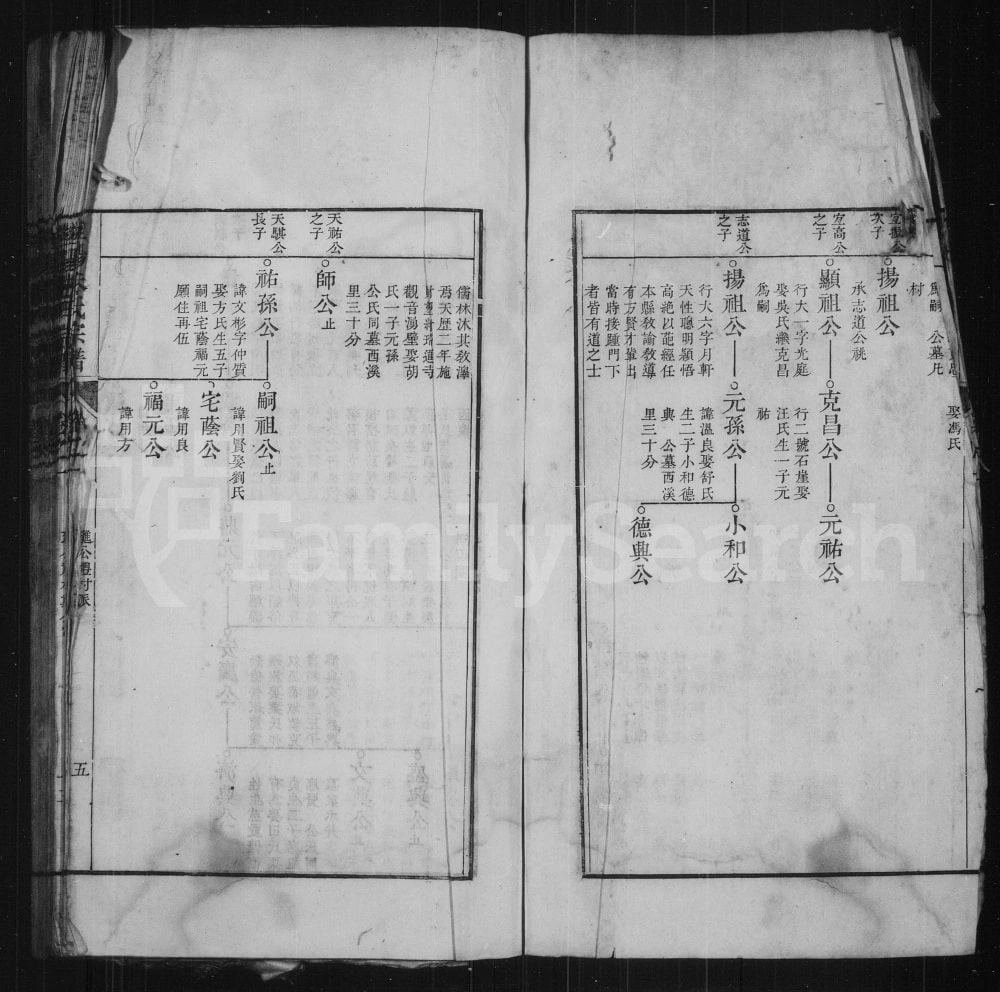 為嗣　公墓凡
村
娶馮氏
次子
揚祖公
承志道公祧
宜高公
之子
顯祖公
行大一字光庭
娶吳氏繼克昌
為嗣
克昌公
行二號石崖娶
汪氏生一子元
祐
元祐公
志道公
之子
揚祖公
行大六字月軒
天性聰明穎悟
高絶以葩經任
本縣敎諭敎導
有方賢才輩出
當時接踵門下
者皆有道之士
元孫公
諱溫良娶舒氏
生二子小和德
興　公墓西溪
里三十分
小和公
德興公
儒林沐其敎澤
爲天歷二年施
觀音湧壁娶胡
氏一子元孫
公氏同墓西溪
里三十分
天祐公
之子
師公止
天騏公
長子
祐孫公
諱文彬字仲質
娶方氏生五子
嗣祖宅蔭福元
願住再伍
嗣祖公止
諱用賢娶劉氏
宅蔭公
諱用良
福元公
諱用方
五
FamilySearch